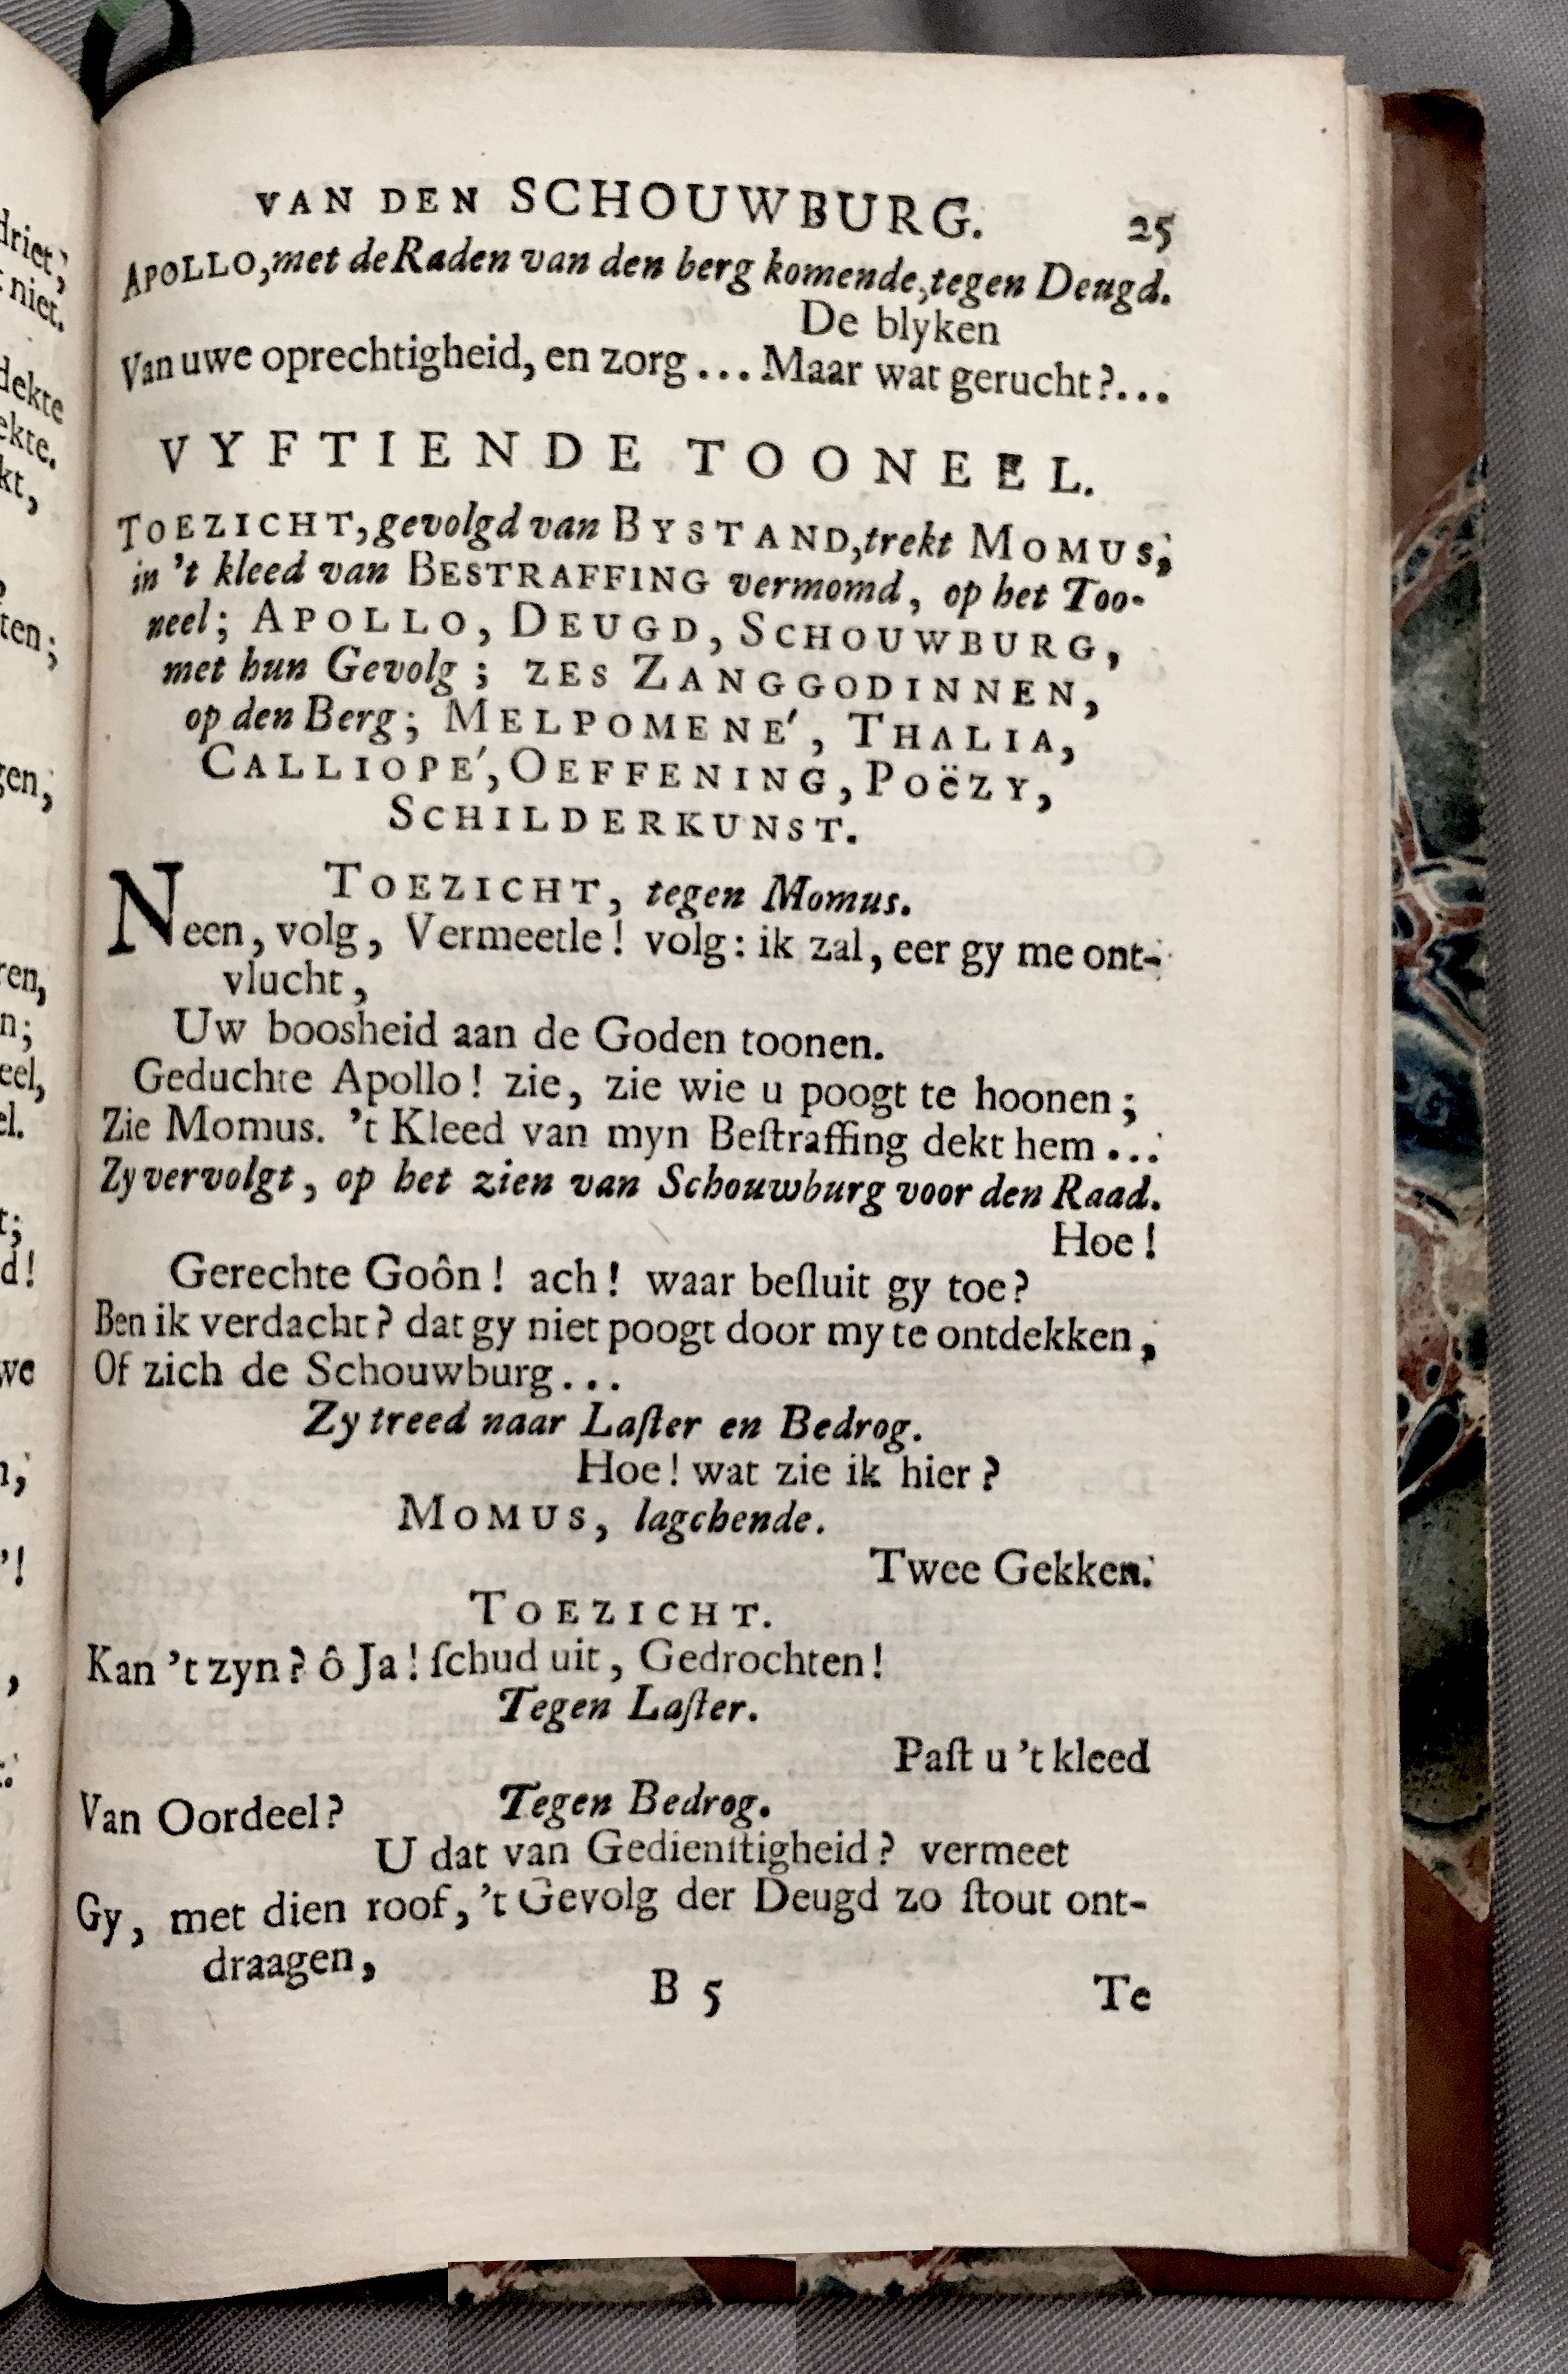 VAN DEN SCHOUWBURG. 25
APOLLO, met de Raden van den berg komende, tegen Deugd.
De blyken
Van uwe oprechtigheid, en zorg ... Maar wat gerucht?...
VYFTIENDE TOONEEL.
TOEZICHT, gevolgd van BYSTAND, trekt MOMUS,
in 't kleed van BESTRAFFING vermomd, op het Too-
neel; APOLLO, DEUGD, SCHOUWBURG,
met hun Gevolg; ZES ZANGGODINNEN,
op den Berg; MELPOMENE', THALIA,
CALLIOPE', OEFFENING, POëZY,
SCHILDERKUNST.
TOEZICHT, tegen Momus.
Neen, volg, Vermeetle! volg: ik zal, eer gy me ont-
vlucht,
Uw boosheid aan de Goden toonen.
Geduchte Apollo! zie, zie wie u poogt te hoonen;
Zie Momus. 't Kleed van myn Beſtraffing dekt hem ...
Zy vervolgt, op het zien van Schouwburg voor den Raad.
Hoe!
Gerechte Goôn! ach! waar beſluit gy toe?
Ben ik verdacht? dat gy niet poogt door my te ontdekken,
Of zich de Schouwburg...
Zy treed naar Laſter en Bedrog.
Hoe! wat zie ik hier?
MOMUS, lagchende.
Twee Gekken.
TOEZICHT.
Kan 't zyn? ô Ja! ſchud uit, Gedrochten!
Tegen Laſter.
Paſt u 't kleed
Van Oordeel?
Tegen Bedrog.
U dat van Gedienſtigheid? vermeet
Gy, met dien roof, 't Gevolg der Deugd zo ſtout ont-
draagen,
B 5 Te
driet,
niet.
dekte
ekte.
kt,
ten;
gen,
ren,
n;
eel,
el.
t;
d!
we
n,
'!
,